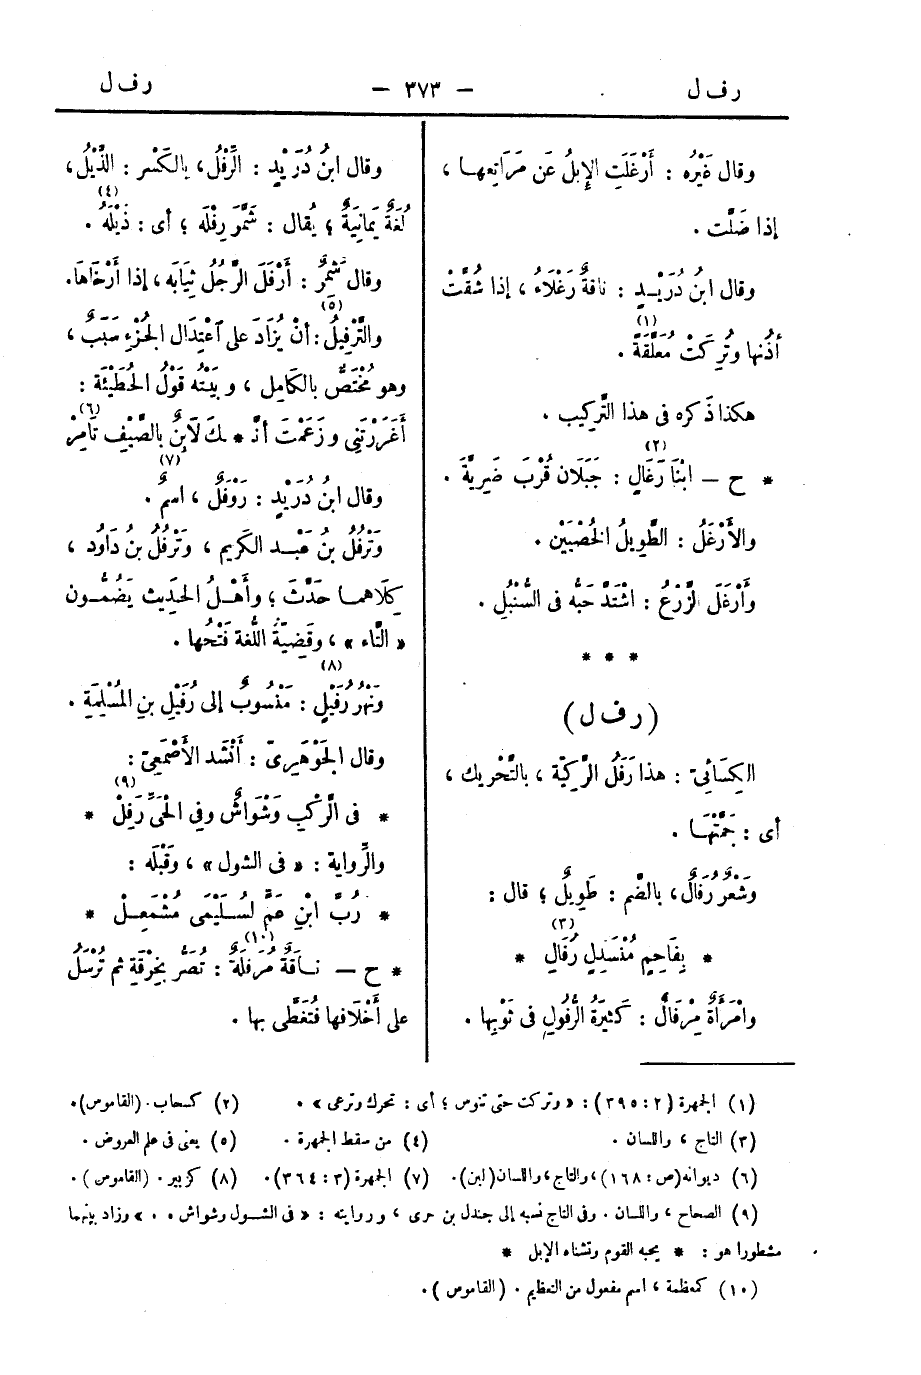 رف ل — ٣٧٣ — رف ل
وقال غَيْرُه : أَرْغَلَتِ الإِبِلُ عَن مَرَاتِعِهـا ،
إذا ضَلَّت .
وقال ابنُ دُرَيْـدٍ : ناقةٌ رَغْلَاءُ ، إذا شُقَّتْ
أذُنُها وتُرِكَتْ مُعَلَّقَةً (١) .
هكذا ذَكره فى هذا التَّركيب .
* ح — ابْنَا رَغَالٍ (٢) : جَبَلان قُرْبَ ضَرِيَّةَ .
والأَرْغَلُ : الطَّوِيلُ الخُصْيَيْن .
وأَرْغَلَ الزَّرْعُ : اشْتَدَّ حَبُّه فى السُّنْبُلِ .
* * *
( رف ل )
الكِسَائِىّ : هذا رَفَلُ الرَّكِيَّة ، بالتَّحْرِيك ،
أى : جَمَّتُهَـا .
وشَعْرٌ رُفَالٌ ، بالضّم : طَوِيلٌ ؛ قال :
* بِفَاحِمٍ مُنْسَدِلٍ رُفَالِ (٣) *
وامْرَأَةٌ مِرْفَالٌ : كَثِيرَةُ الرُّفُولِ فى ثَوْبِها .
وقال ابنُ دُرَيْدٍ : الرِّفْلُ ، بالكَسْر : الذَّيْلُ ،
لُغَةٌ يَمَانِيَةٌ ؛ يُقال : شَمَّرَ رِفْلَه ؛ أى : ذَيْلَهُ (٤) .
وقال شَمِرٌ : أَرْفَلَ الرَّجُلُ ثِيَابَه ، إذا أَرْخَاهَا .
والتَّرْفِيلُ (٥) : أنْ يُزَادَ على اعْتِدَال الجُزْءِ سَبَبٌ ،
وهو مُخْتَصٌّ بالكَامِل ، و بَيْتُه قَوْلُ الحُطَيْئَة :
أَغَرَرْتَنِى وزَعَمْتَ أنَّـ * ـكَ لَابِنٌ بالصَّيْفِ تَامِرْ (٦)
وقال ابنُ دُرَيْدٍ : رَوْفَلٌ (٧) ، اسمٌ .
وتَرْفُلُ بنُ عَبْـدِ الكَرِيم ، وتَرْفُلُ بنُ دَاوُد ،
كِلَاهمـا حَدَّثَ ؛ وأَهْـلُ الحَدِيث يَضُمُّـون
« التَّاء » ، وقَضِيَّةُ اللُّغة فَتْحُها .
ونَهْرُ رُفَيْلٍ (٨) : مَنْسُوبٌ إلى رُفَيْلِ بنِ المُسْلِمَةِ .
وقال الجَوْهَرِىّ : أَنْشَد الأَصْمَعِىّ :
* فى الرَّكْبِ وَشْوَاشٌ وفِى الحَىِّ رَفِلْ (٩) *
والرِّواية : « فى الشول » ، وقَبْلَه :
* رُبَّ ابْنِ عَمٍّ لسُـلَيْمَى مُشْمَعِـلْ *
* ح — نـاقَةٌ مُرَفَّلَةٌ (١٠) : تُصَرُّ بخِرْقَةٍ ثم تُرْسَلُ
على أَخْلَافِها فتُغَطَّى بها .
(١) الجمهرة (٢ : ٣٩٥) : « وتركت حتى تنوس ؛ أى : تتحرك وترعى » . (٢) كسحاب . (القاموس) .
(٣) التاج ، واللسان . (٤) من سقط الجمهرة . (٥) يعنى فى علم العروض .
(٦) ديوانه (ص : ١٦٨) ، والتاج ، واللسان (لبن) . (٧) الجمهرة (٣ : ٣٦٤) . (٨) كزبير . (القاموس) .
(٩) الصحاح ، واللسان . وفى التاج نسبه إلى جندل بن حرى ، وروايته : « فى الشـول وشواش . . » وزاد بينهما
مشطورا هو : * يحبه القوم وتشناه الإبل *
(١٠) كمعظمة ، اسم مفعول من التعظيم . (القاموس) .